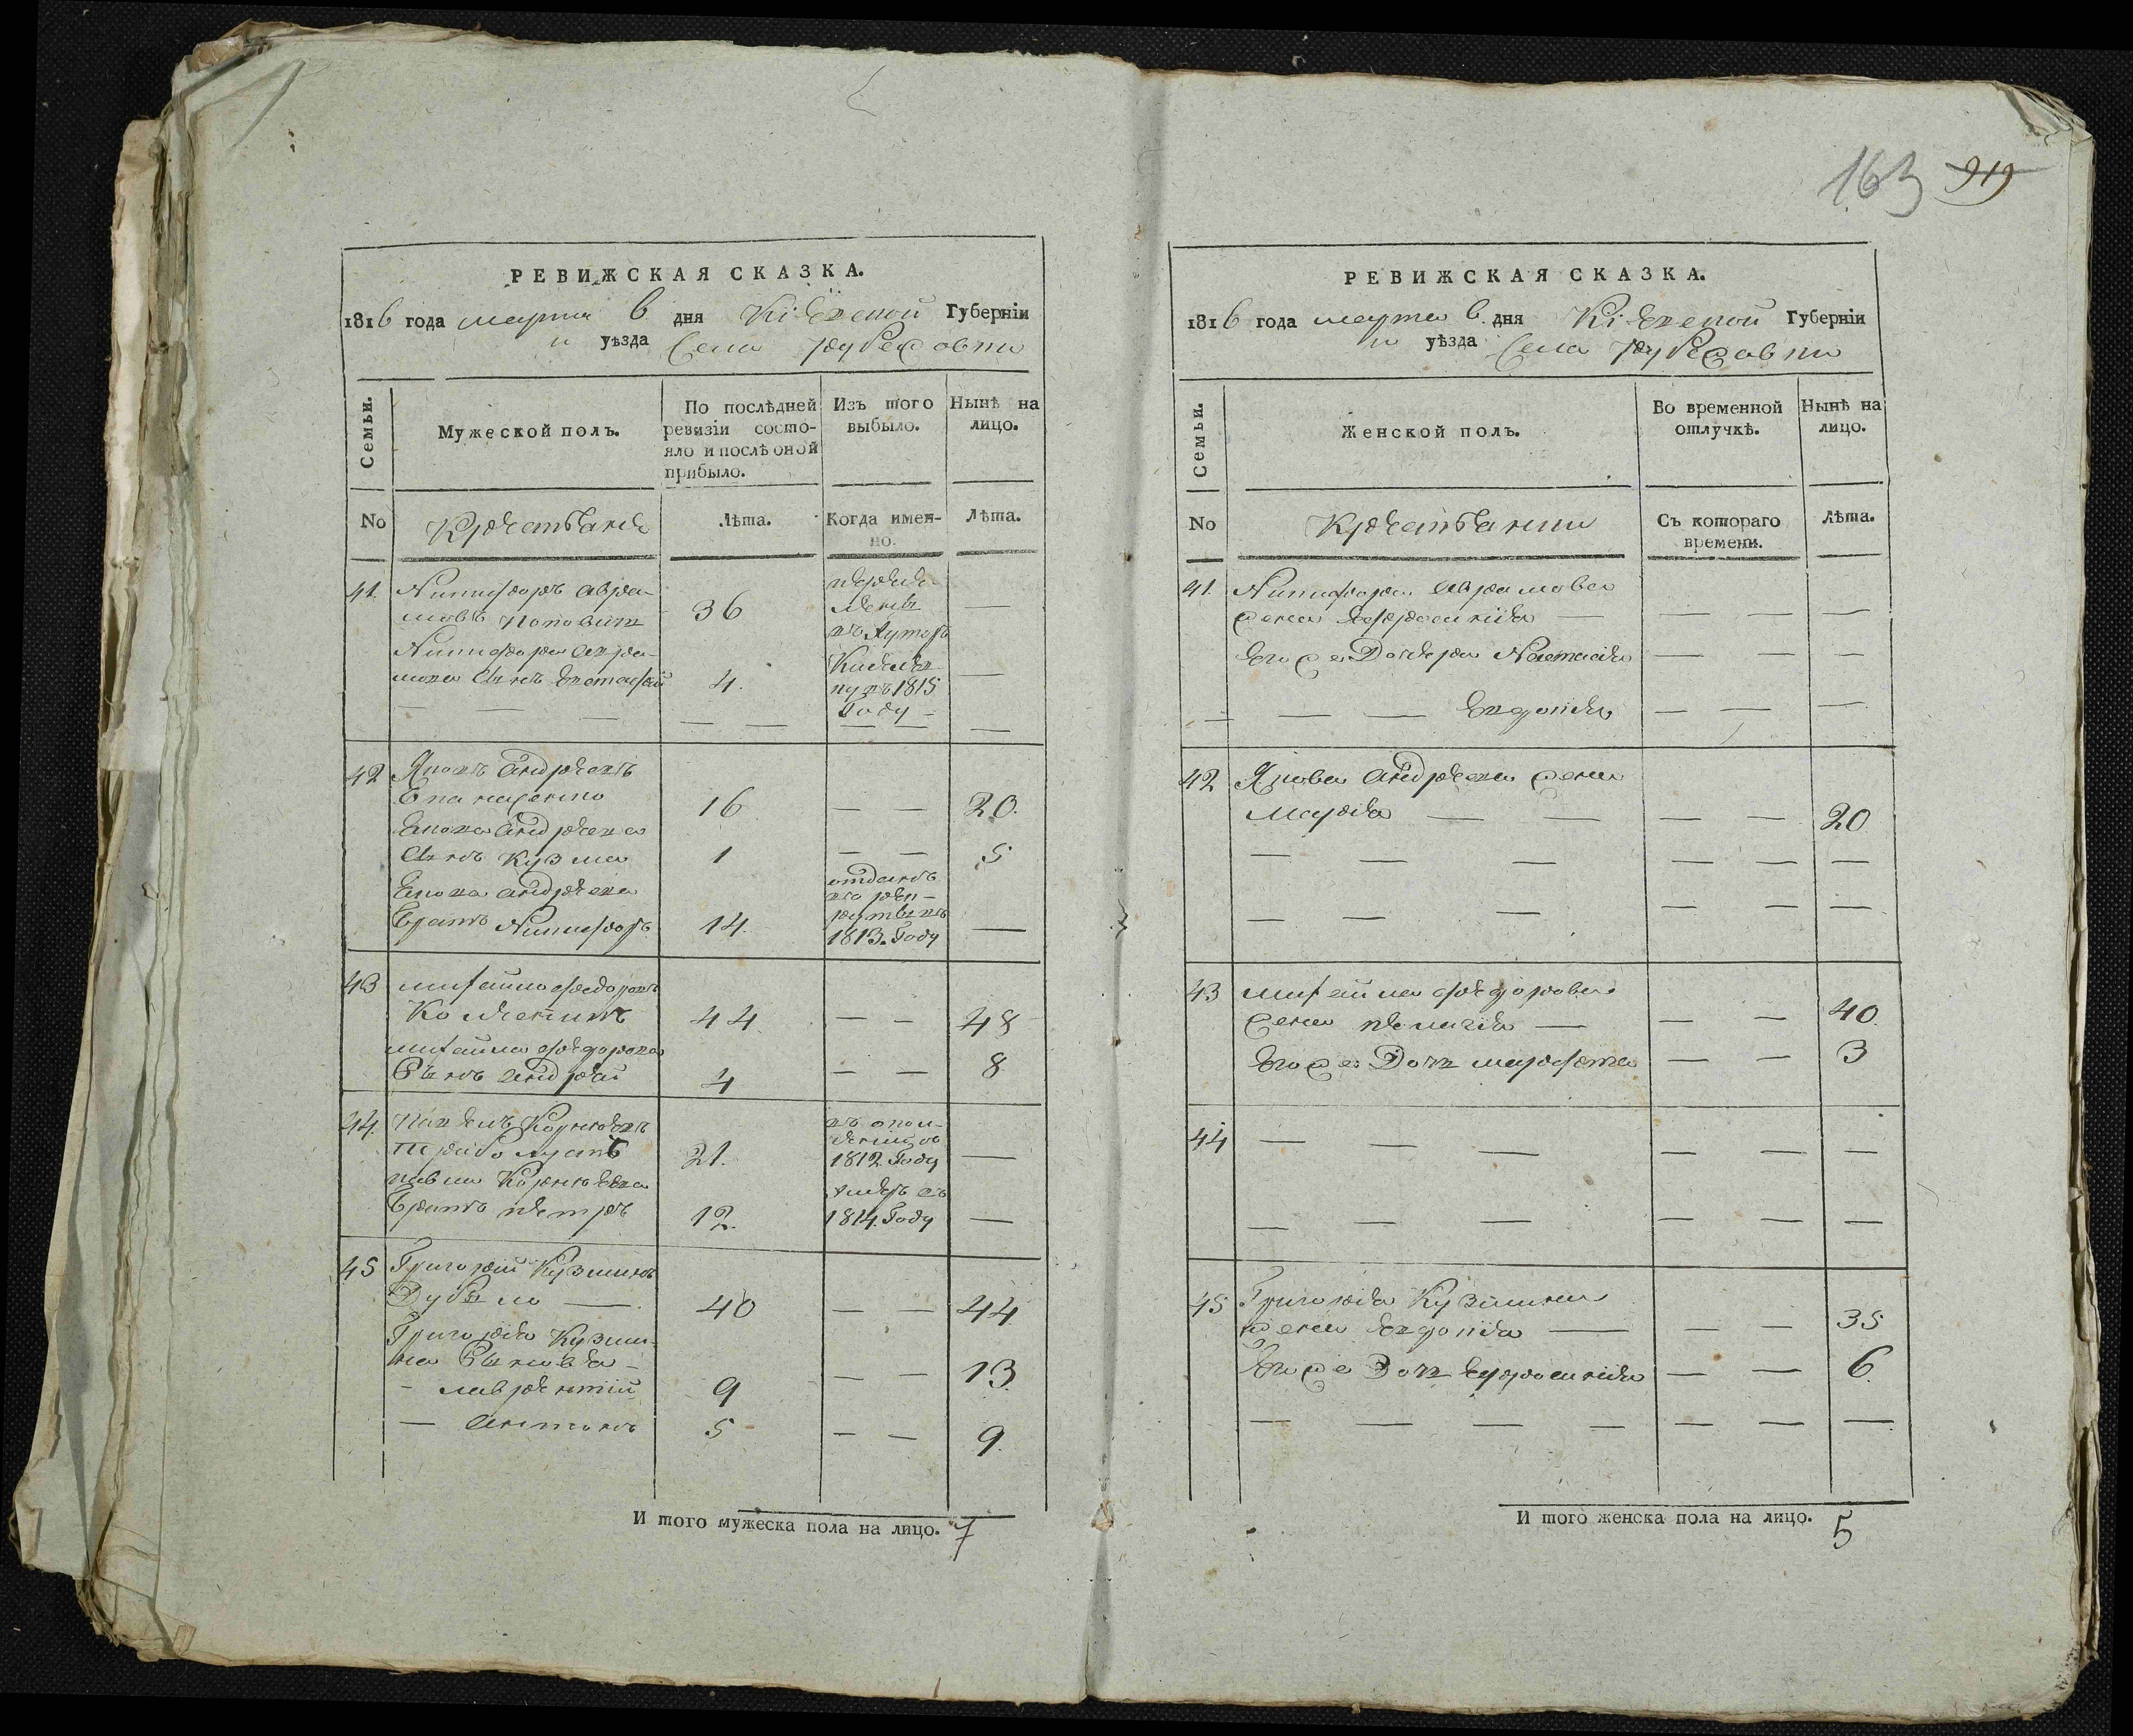 163 919
РЕВИЖСКАЯ СКАЗКА.
1816 года марта 6 дня Кіевской Губерніи
уѣзда Села
Семьи.
Мужеской полъ.
По послѣдней ревизіи состо-
яло и послѣ оной прибыло.
Изъ того выбыло.
Нынѣ на лицо.
No
Крестьяне
Лѣта.
Когда имен-
но.
Лѣта.
41. Никифоръ Авра-
мовъ Поповичъ 36 переве- —
Никифора Авра-
мова сынъ Евстафей 4. —
в 1815
Году
42 Яковъ Андреевъ
16 — — 20.
Якова Андреева
сынъ Кузма 1 — — 5
Якова Андреева отданъ
братъ Никифоръ 14. в рек-
рути въ
1813. Году —
43 Михайло Федоровъ
44 — — 48
Михайла Федорова
Сынъ Андрей 4 — — 8
44. Павелъ Корнѣевъ
21. въ опол-
1812 Году —
Павла Корнѣева
братъ Петръ 12. умеръ въ
1814. Году —
45 Григорій Кузминъ
40 — — 44
Григорія Кузми-
на Сыновья —
— Лаврентій 9 — — 13
— Антонъ 5 — — 9.
И того мужеска пола на лицо. 7
РЕВИЖСКАЯ СКАЗКА.
1816 года марта 6 дня Кіевской Губерніи
уѣзда Села
Семьи.
Женской полъ.
Во временной отлучкѣ.
Нынѣ на лицо.
No
Крестьянки
Съ котораго времени.
Лѣта.
41. Никифора Аврамова
жена Ефросинія — — — —
Его же Дочера Настасія — — —
— — — Евдокія — — —
42 Якова Андреева жена
Марія — — — — 20
— — — — — —
— — — — — —
43 Михайла Федорова
жена Пелагія — — — 40.
Его же Дочь Марфа — — 3
44 — — — — — —
— — — — — —
45 Григорія Кузмина
жена Евдокія — — — 35
Его же Дочь Ефросинія — — 6.
— — — — — — —
И того женска пола на лицо. 5